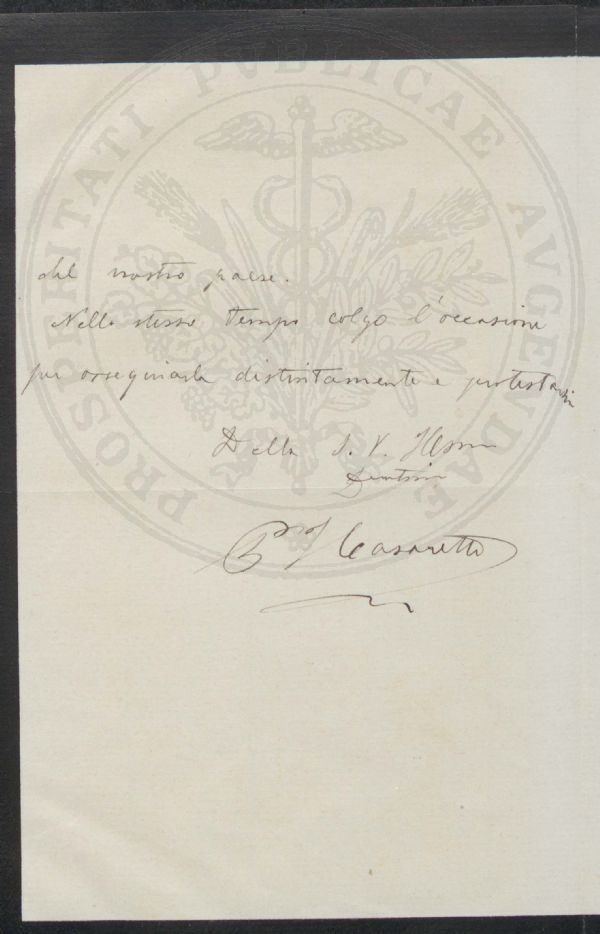 PROSPERITATI PVBLICAE AVGENDAE
del nostro paese.
Nello stesso tempo colgo l'occasione
per ossequiarla distintamente e protestarmi
Della S. V. Illma
Devotmo
Prof Casaretto